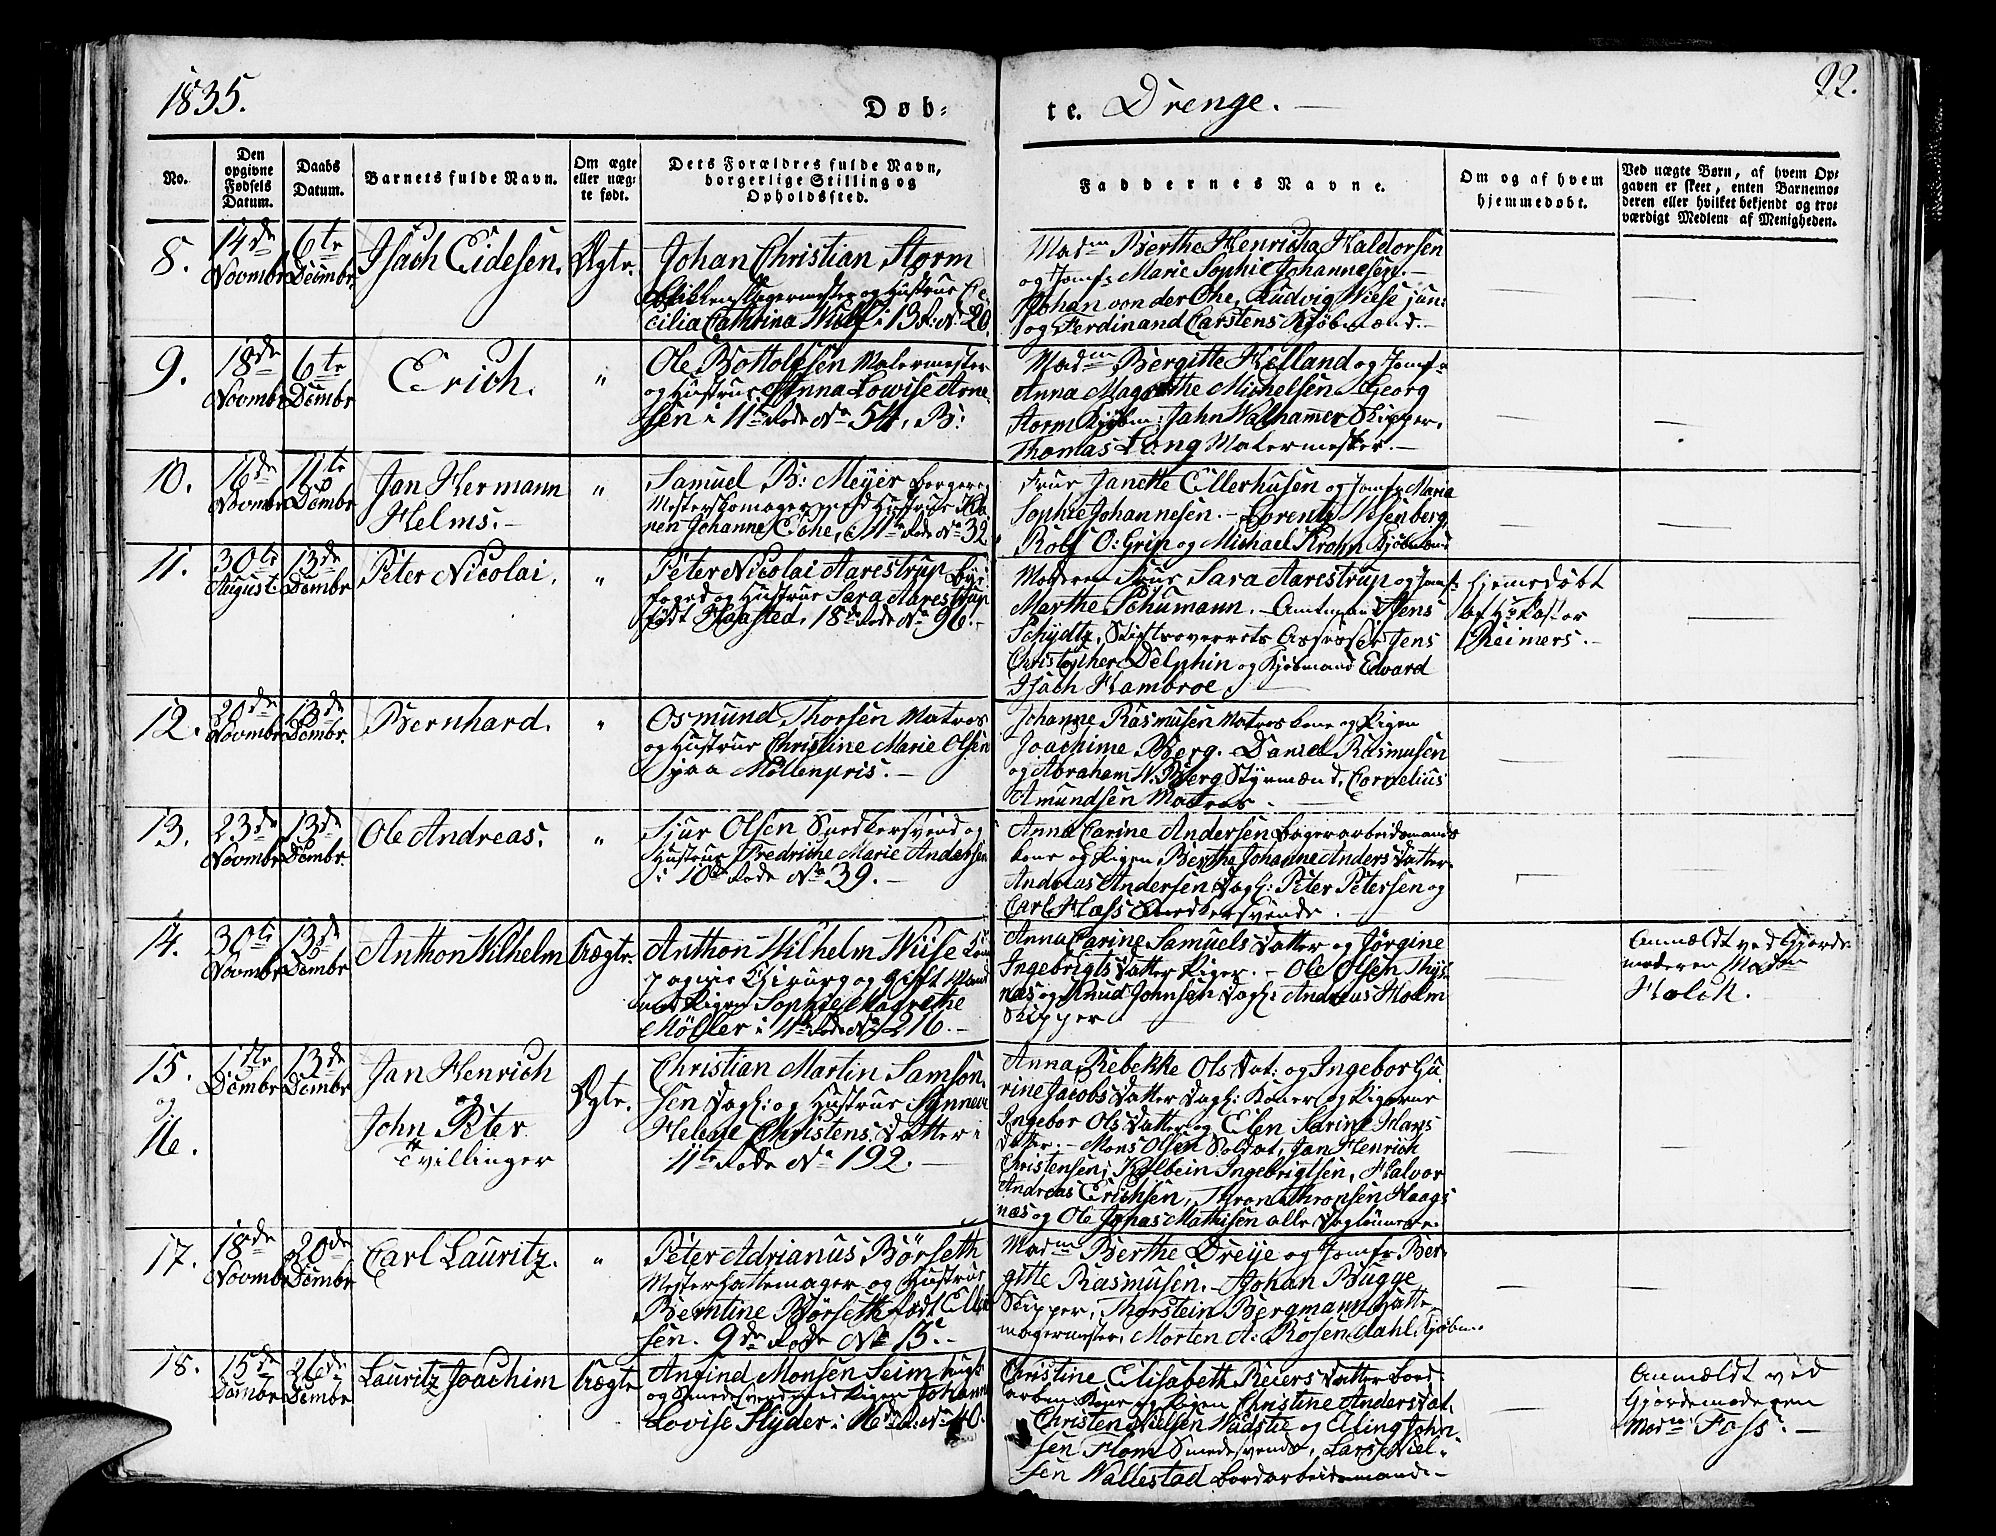 1835.
Døb-
te. Drenge.
22.
No.
Den opgivne Fødsels Datum.
Daabs Datum.
Barnets fulde Navn.
Om ægte eller uægte født.
Dets Forældres fulde Navn, borgerlige Stilling og Opholdssted.
Faddernes Navne.
Om og af hvem hjemmedøbt.
Ved uægte Børn, af hvem Opgaven er skeet, enten Barnemoderen eller hvilket bekjendt og troværdigt Medlem af Menigheden.
8.
14de Novmbr
6te Decmbr
Isach Eidesen.
Ægte.
Johan Christian Storm
Blikkenslagermester og Hustrue Ce-
cilia Cathrina Wulf i 13 R: No 20.
Madm Berthe Henricha Haldorsen
og Jomfr Marie Sophie Johannesen.
Johan von der Ohe, Ludvig Wiese jun:
og Ferdinand Carstens Kjøbmænd.
9.
18de Novmbr
6te Dcmbr
Erich.
"
Ole Bottolfsen Malermester
og Hustrue Anna Lowise Arne-
sen i 11te Rode No 54. B:
Madm Bergitte Helland og Jomfr
Anna Magrethe Michelsen. Georg
Storm Kjøbm: Jahn Walhammer Skipper,
Thomas Long Malermester.
10.
16de Novmbr
11te Dcmbr
Jan Hermann
Helms.
"
Samuel B: Meyer borger
Mesterskomager med Hustrue Ka-
ren Johanne Eche, i 11te Rode No 32
Frue Janette Ellerhusen og Jomfr Marie
Sophie Johannesen. Lorentz Wesenberg,
Rolf O: Grip og Michael Krohn Kjøbmænd
11.
30te August
13de Dcmbr
Peter Nicolai.
"
Peter Nicolai Aarestrup Bye
foged og Hustrue Sara Aarestrup
født Haasted, 18de Rode No 96.
Moderen Frue Sara Aarestrup og Jomf:
Marthe Schumann. Amtmand Jens
Schydtz, Stiftsoverrets Assessor Jens
Christopher Delphin og Kjøbmand Edvard
Isach Hambroe.
hjemedøbt
af Hr Pastor
Reimers.
12.
20de Novmbr
13de Dcmbr.
Bernhard.
"
Osmund Thorsen Matros
og Hustrue Christine Marie Olsen
paa Möllenpris.
Johanne Rasmusen Matros kone og Pigen
Joachime Berg. Daniel Rasmusen
og Abraham N. Berg Styrmænd, Cornelius
Amundsen Matros.
13.
23de Novmbr
13de Dcmbr.
Ole Andreas.
"
Sjur Olsen Snedkersvend og
Hustrue Fredriche Marie Andersen
i 10de Rode No 39.
Anna Carine Andersen bagerarbeidsmands
kone og Pigen Berthe Johanne Anders Datter.
Andreas Andersen Dagl: Peter Petersen og
Carl Hass Snedkersvende.
14.
30te Novmbr
13de Dcmbr
Anthon Wilhelm
Uægte.
Anthon Wilhelm Wiese Com-
pagnie Chirurg og gift Mand
med Pigen Sophie Magrethe
Möller i 11te Rode No 216.
Anna Carine Samuels Datter og Jörgine
Ingebrigts Datter Piger. Ole Olsen Thys-
næs og Knud Johnsen Dagl: Andreas Holm
Skipper
Anmeldt ved Gjorde
moderen Madm
Holck.
15. og 16.
1ste Dcmbr
13de Dcmbr
Jan Henrich
og
John Peter
Tvillinger
Ægte.
Christian Martin Samson-
sen Dagl: og Hustrue Synneve
Helene Christens Datter i
11te Rode No 192.
Anna Rebekke Ols Dat: og Ingebor Gu-
rine Jacobs Datter Dagl: Koner og Pigerne
Ingebor Ols Datter og Elen Karine Hans
Datter. Mons Olsen Soldat, Jan Henrich
Christensen, Kolbein Ingebrigtsen, Halvor
Andreas Erichsen, Thron Thronsen Haags
næs og Ole Jonas Mathisen alle Daglönnere.
17.
18de Novmbr
20de Dcmbr
Carl Lauritz.
"
Peter Adrianus Börseth
Mester Hattemager og Hustrue
Berntine Börseth født Elle-
sen. 9de Rode No 15.
Madme Berthe Dreye og Jomfr Ber-
gitte Rasmusen. Johan Bugge
Skipper, Thorstein Bergmann Hatte-
magermester, Morten A: Rosendahl, Kjøbm.
18.
15de Dcmbr
26de Dcmbr
Lauritz Joachim
Uægte
Anfind Monsen Seim
og Smedesvend med Pigen Johanne
Lovise Flyder i 16de R. No 40.
Christine Elisabeth Reiers Datter bord-
arbm: Kone og Pigen Christine Anders Dat.
Christen Nielsen Wadstie og Elling John-
sen Flom Smedesvende, Lars Niel-
sen Wallestad bordarbeidsmand.
Anmeldt ved
Gjordemoderen
Madm Foss.